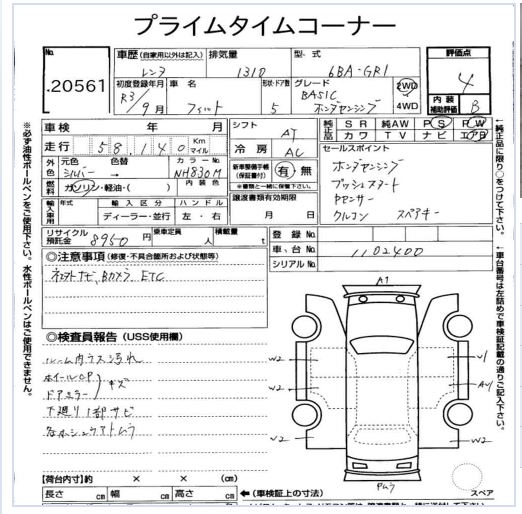 プライムタイムコーナー
No.
20561
車歴 (自家用以外は記入)
レンタ
排気量
1310
型 式
6BA-GR1
評価点
4
初度登録年月
R3/9月
車 名
フィット
形状・ドア数
5
グレード
BASIC
ホンダセンシング
2WD
4WD
内装
補助評価
B
車検 年 月
走行 58140 Km マイル
シフト AT
冷房 AC
純正品
SR 純AW PS PW
カワ TV ナビ エアB
外色
元色
シルバー
色替
→
カラーNo.
NH830M
燃料
ガソリン・軽油・( )
内装色
新車整備手帳
(保証書付)
有・無
※書類と一緒に保管下さい。
セールスポイント
ホンダセンシング
プッシュスタート
クルコン スペアキー
輸入車用
年式
輸入区分
ディーラー・並行
ハンドル
左・右
譲渡書類有効期限
月 日
リサイクル預託金 8950 円
乗車定員 人
積載量 t
登録No.
車、台No. 1102400
シリアルNo.
◎注意事項 (修復・不具合箇所および状態等)
ナビ、Bカメラ、ETC
◎検査員報告 (USS使用欄)
ルーム内ラス汚れ
ホイールCP
ドアミラー
キズ
下廻り1部サビ
A1
W2
W2
W2
W1
W2
【荷台内寸】約 × × (cm)
長さ cm 幅 cm 高さ cm
←(車検証上の寸法)
スペア
※必ず油性ボールペンをご使用下さい。水性ボールペンはご使用できません。
↑純正品に限り○をつけて下さい。
↑車台番号は左詰めで車検証記載の通りご記入下さい。